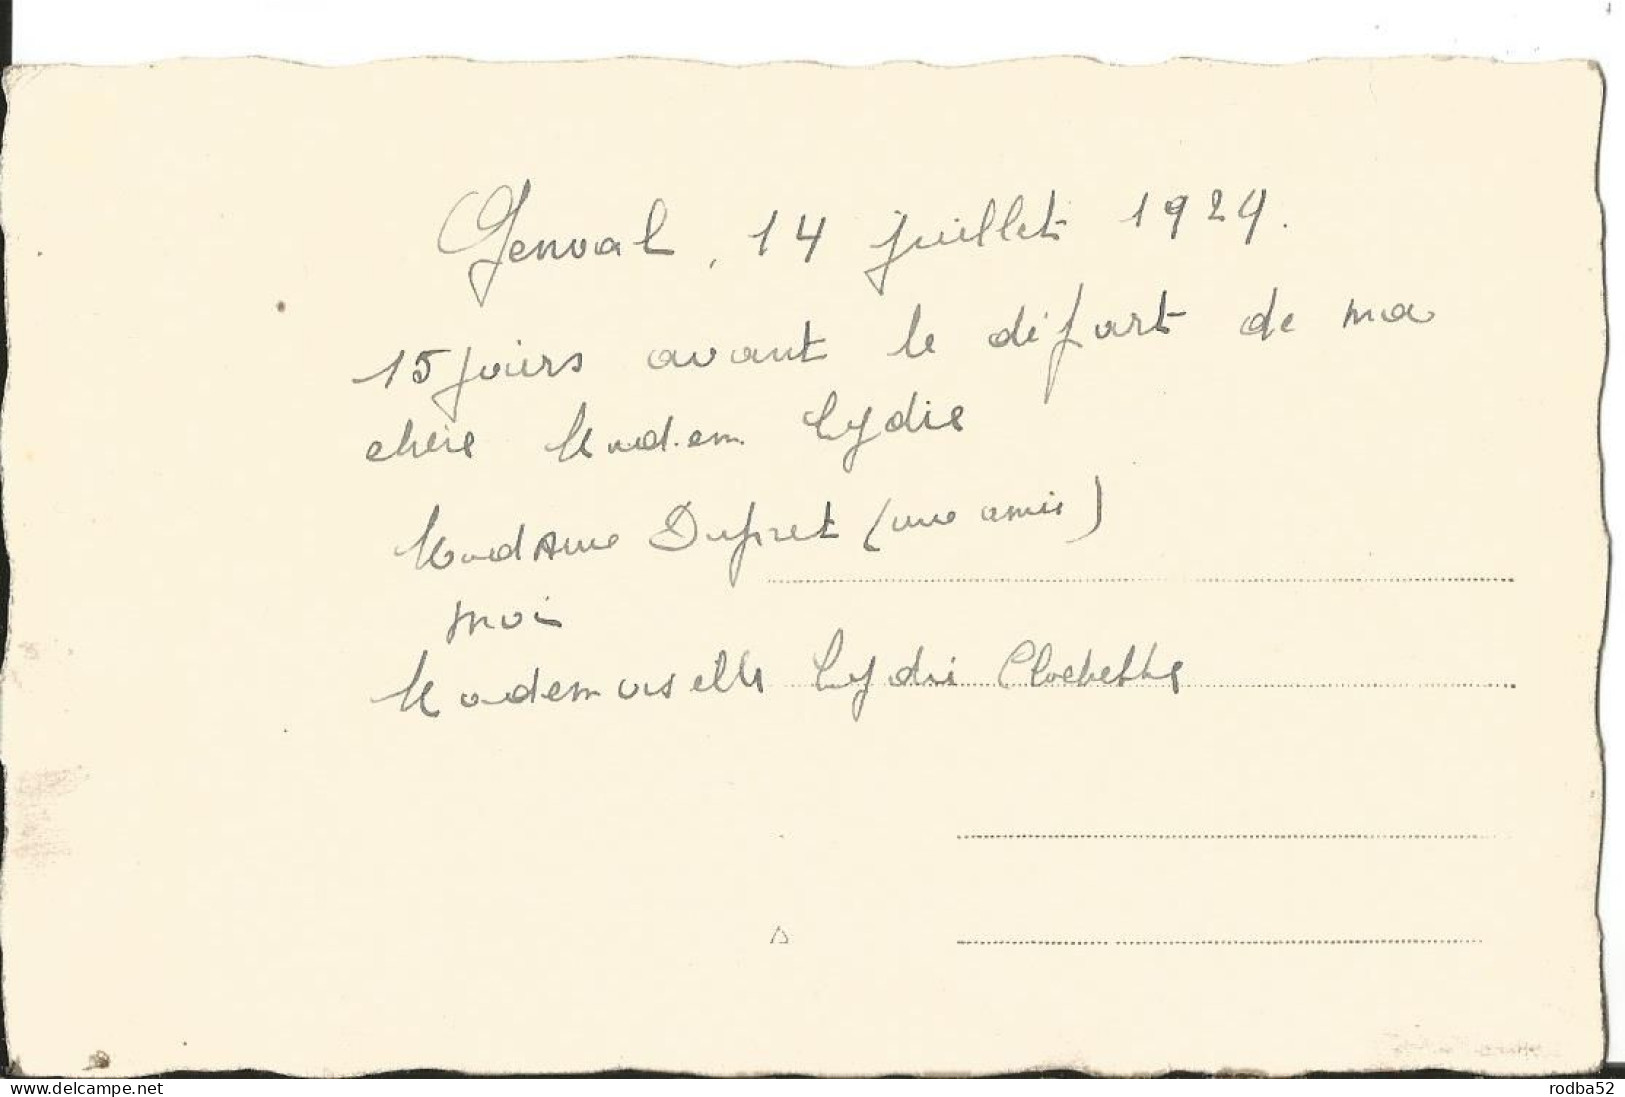 Genval, 14 juillet 1924.
15 jours avant le départ de ma
chère Madem. Lydie
Madame Dupret (une amie)
moi
Mademoiselle Lydie
www.delcampe.net
rodba52